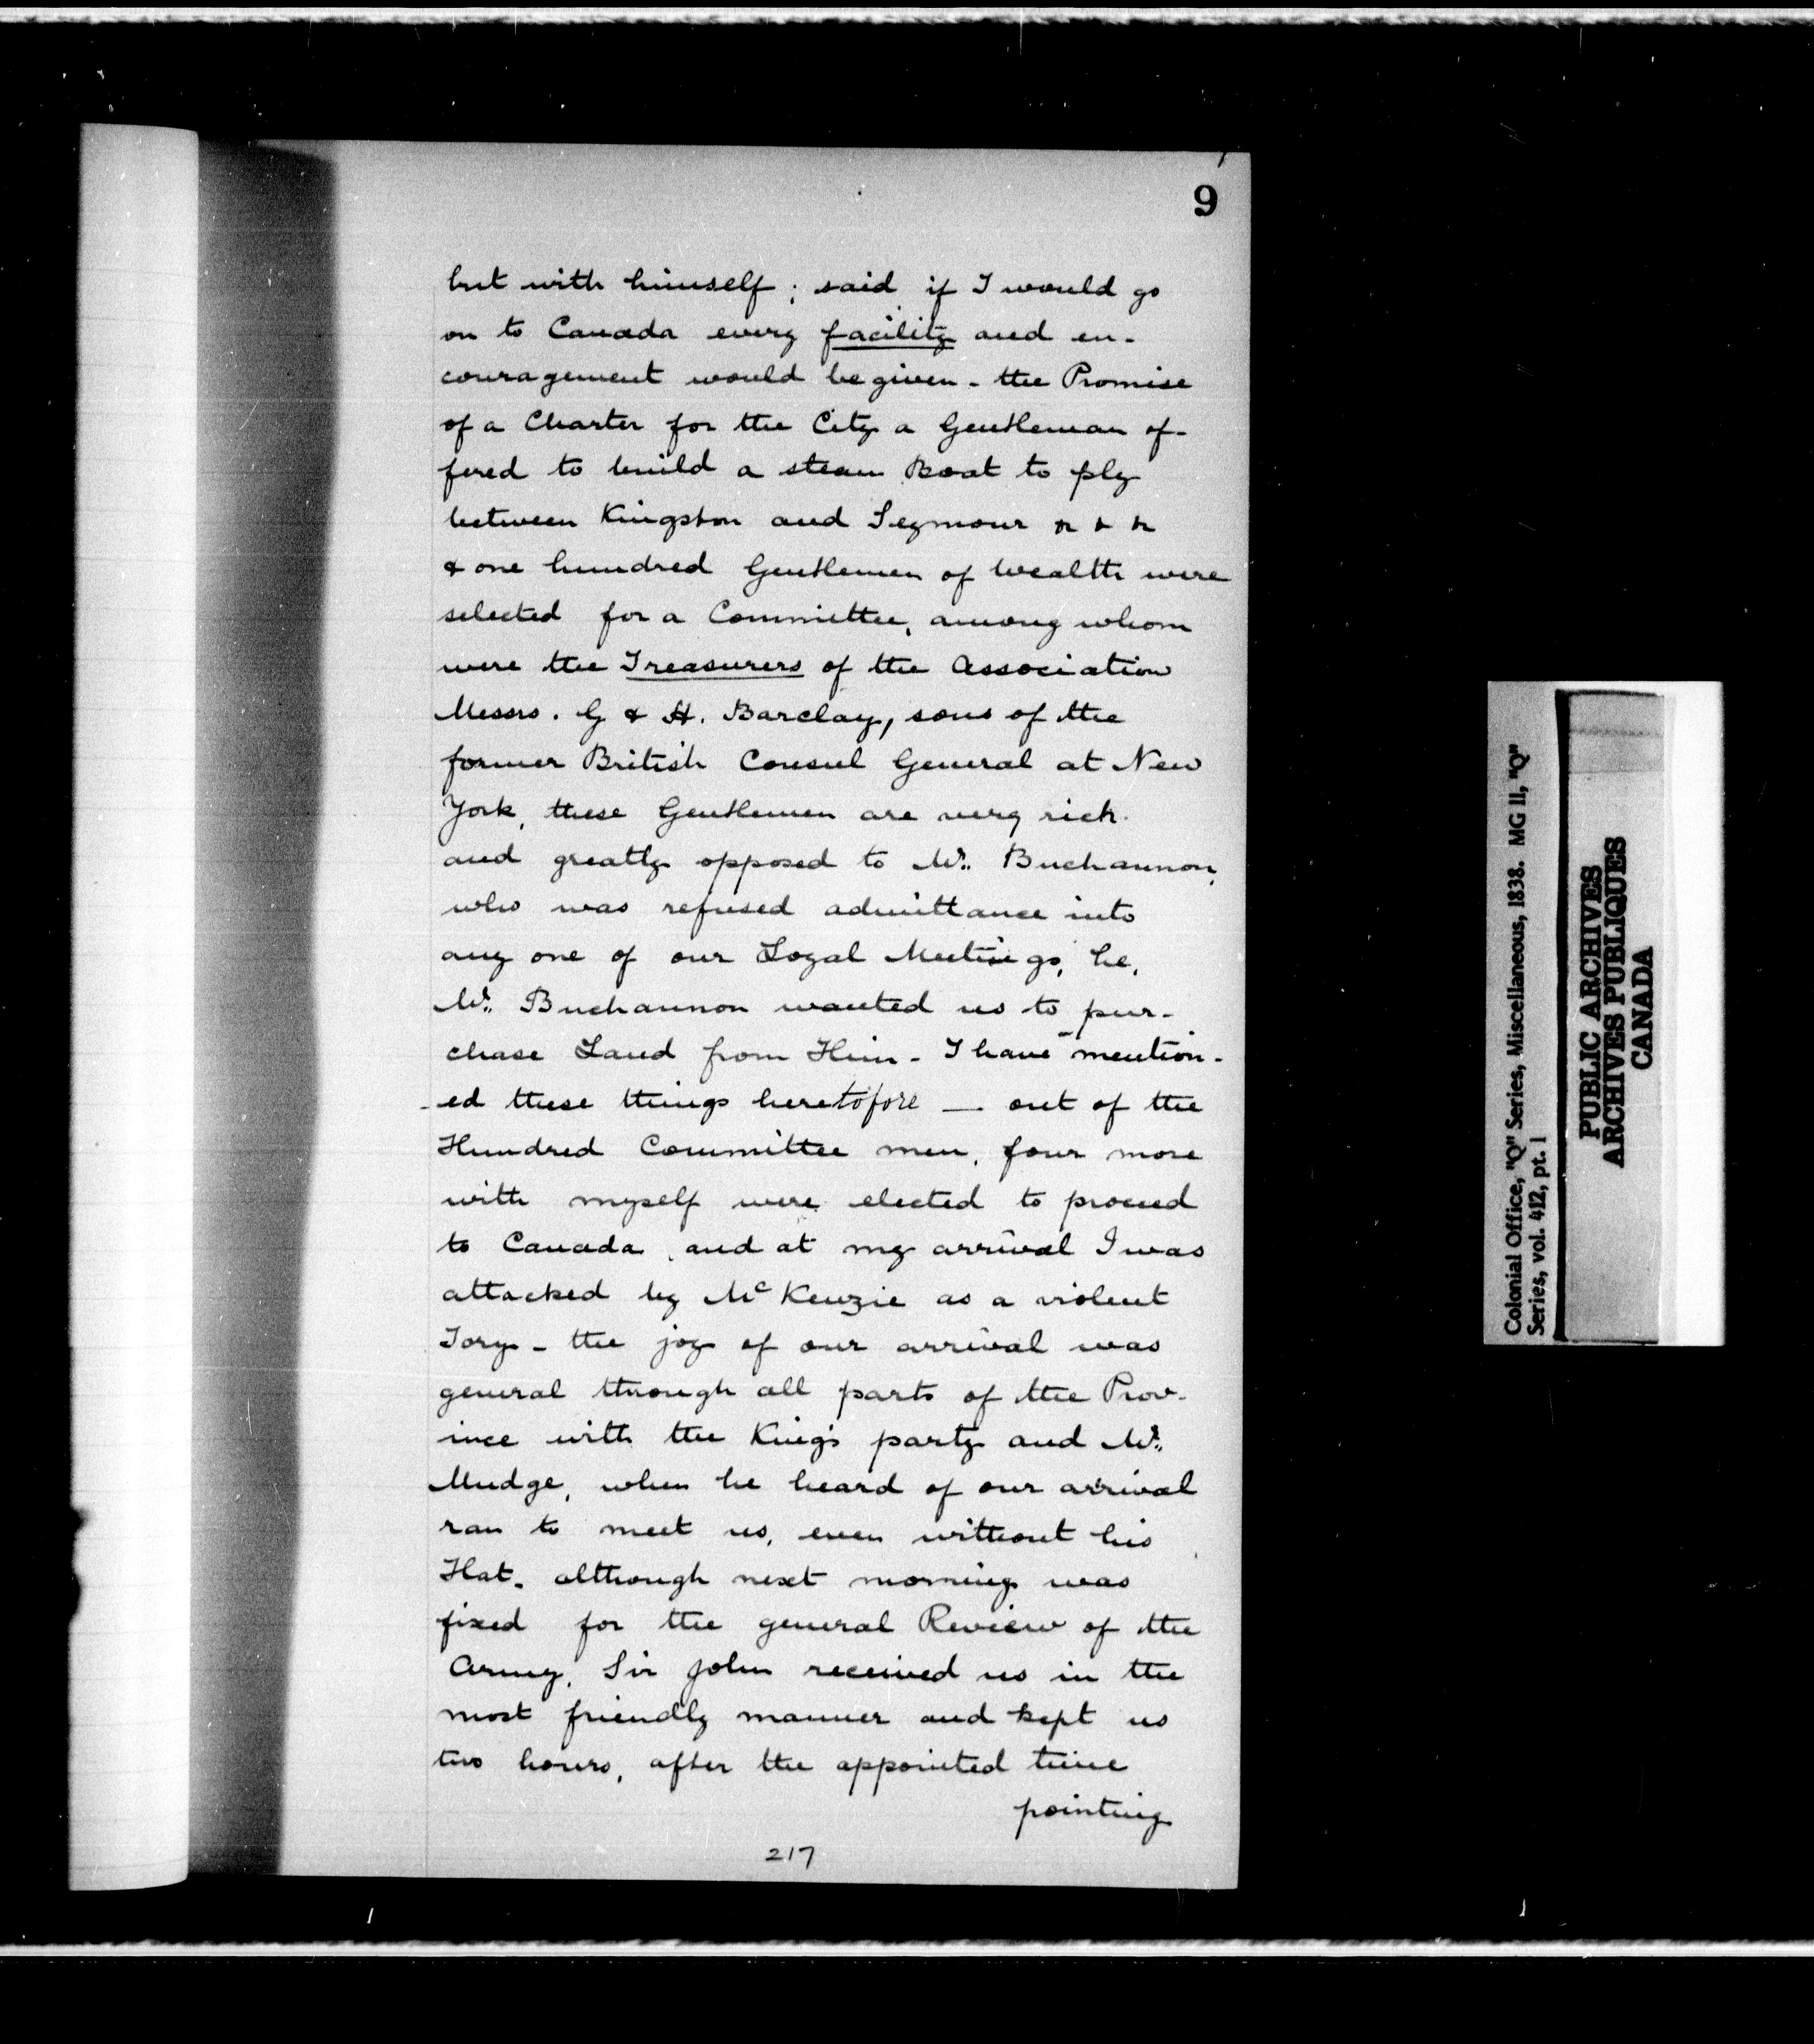 9
but with himself; said if I would go
on to Canada every facility and en-
couragement would be given - the Promise
of a Charter for the City a Gentleman of-
fered to build a steam Boat to ply
between Kingston and Seymour & & &
& one hundred Gentlemen of wealth were
selected for a Committee, among whom
were the Treasurers of the Association
Messrs. G & H. Barclay, sons of the
former British Consul General at New
York, these Gentlemen are very rich
and greatly opposed to Mr. Buchannon,
who was refused admittance into
any one of our Loyal Meetings, he,
Mr. Buchannon wanted us to pur-
chase Land from Him - I have mention-
-ed these things heretofore — out of the
Hundred Committee men, four more
with myself were elected to proceed
to Canada, and at my arrival I was
attacked by McKenzie as a violent
Tory - the joy of our arrival was
general through all parts of the Prov-
ince with the King's party and Mr.
Mudge, when he heard of our arrival
ran to meet us, even without his
Hat. although next morning was
fixed for the general Review of the
Army, Sir John received us in the
most friendly manner and kept us
two hours, after the appointed time
pointing
217
Colonial Office, "Q" Series, Miscellaneous, 1838. MG 11, "Q"
Series, vol. 412, pt. 1
PUBLIC ARCHIVES
ARCHIVES PUBLIQUES
CANADA